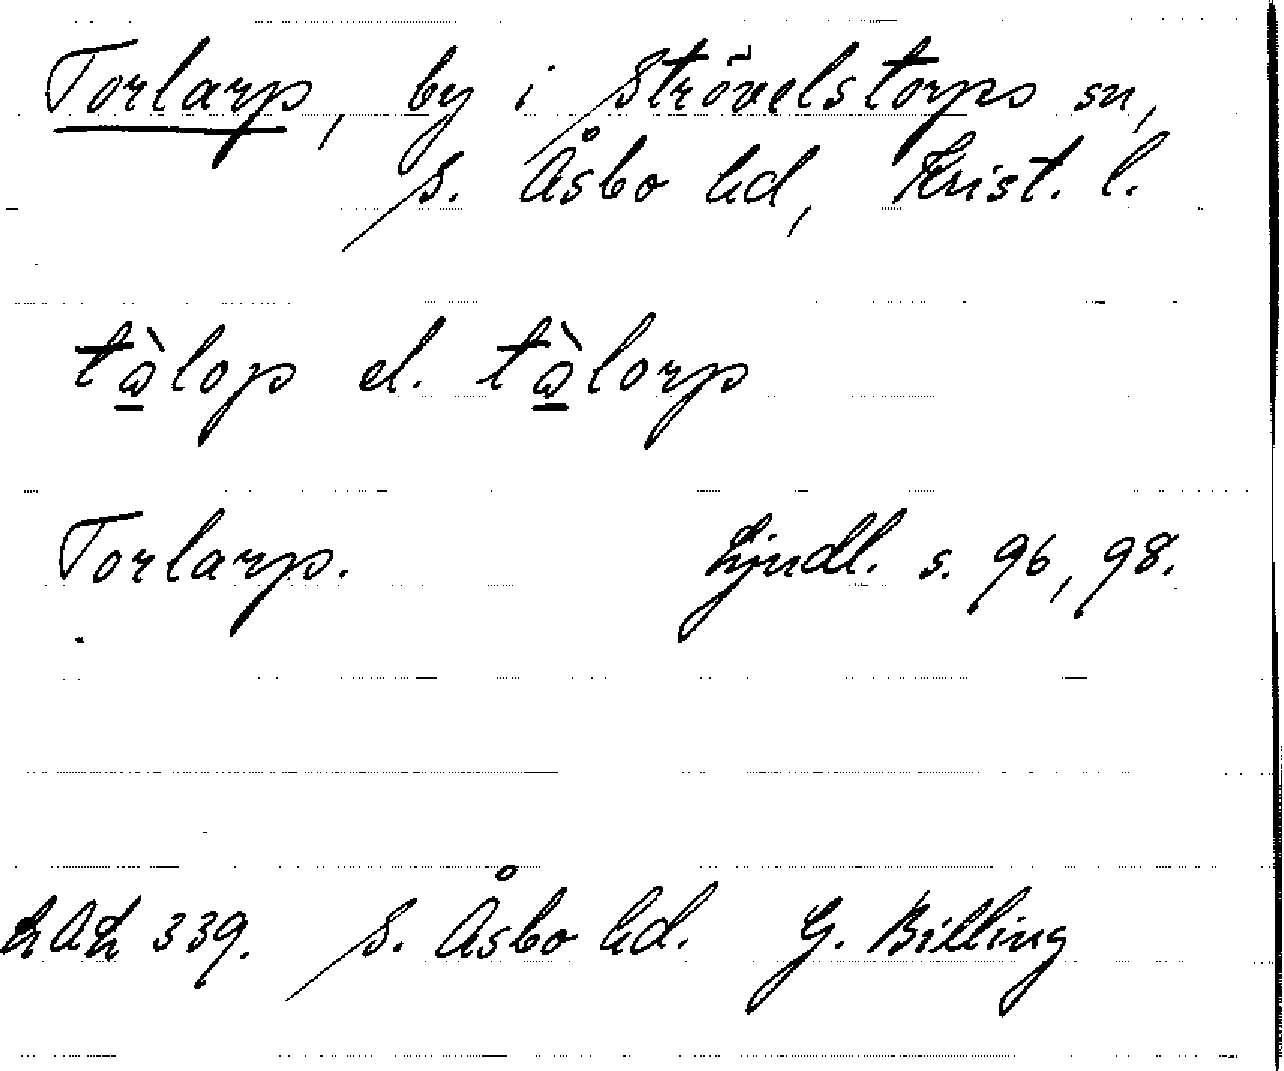 Torlarp, by i Strövelstorps sn,
S. Åsbo hd, Krist. l.
tàlop el. tàlorp
Torlarp. Ljudl. s. 96, 98.
LAL 339. S. Åsbo hd. G. Billing